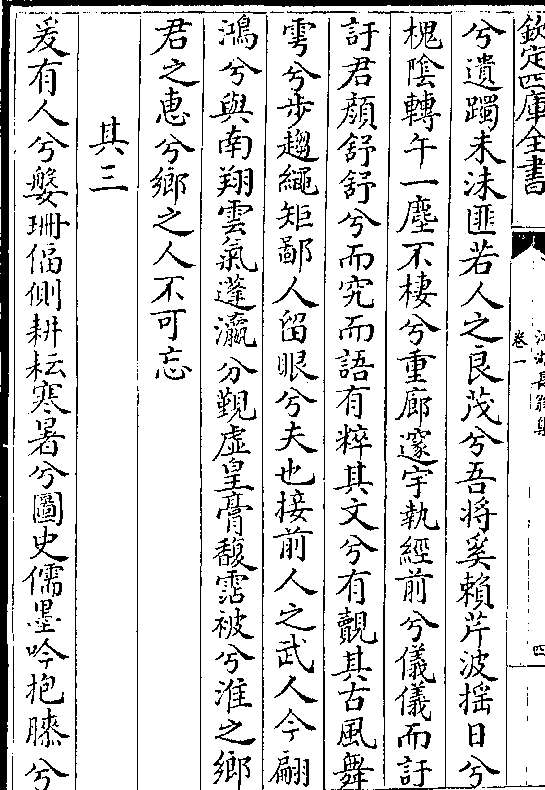 欽定四庫全書
江湖長翁集
卷一
四
兮遺躅未沬匪若人之良茂兮吾將奚賴芹波揺日兮
槐陰轉午一塵不棲兮重廊邃宇執經前兮儀儀而訏
訏君顔舒舒兮而究而語有粹其文兮有覿其古風舞
雩兮步趨繩矩鄙人留眼兮夫也接前人之武人今翩
鴻兮與南翔雲氣蓬瀛兮覲虚皇膏馥霑被兮淮之鄉
君之惠兮鄉之人不可忘
其三
爰有人兮媻珊偪側耕耘寒暑兮圖史儒墨吟抱膝兮